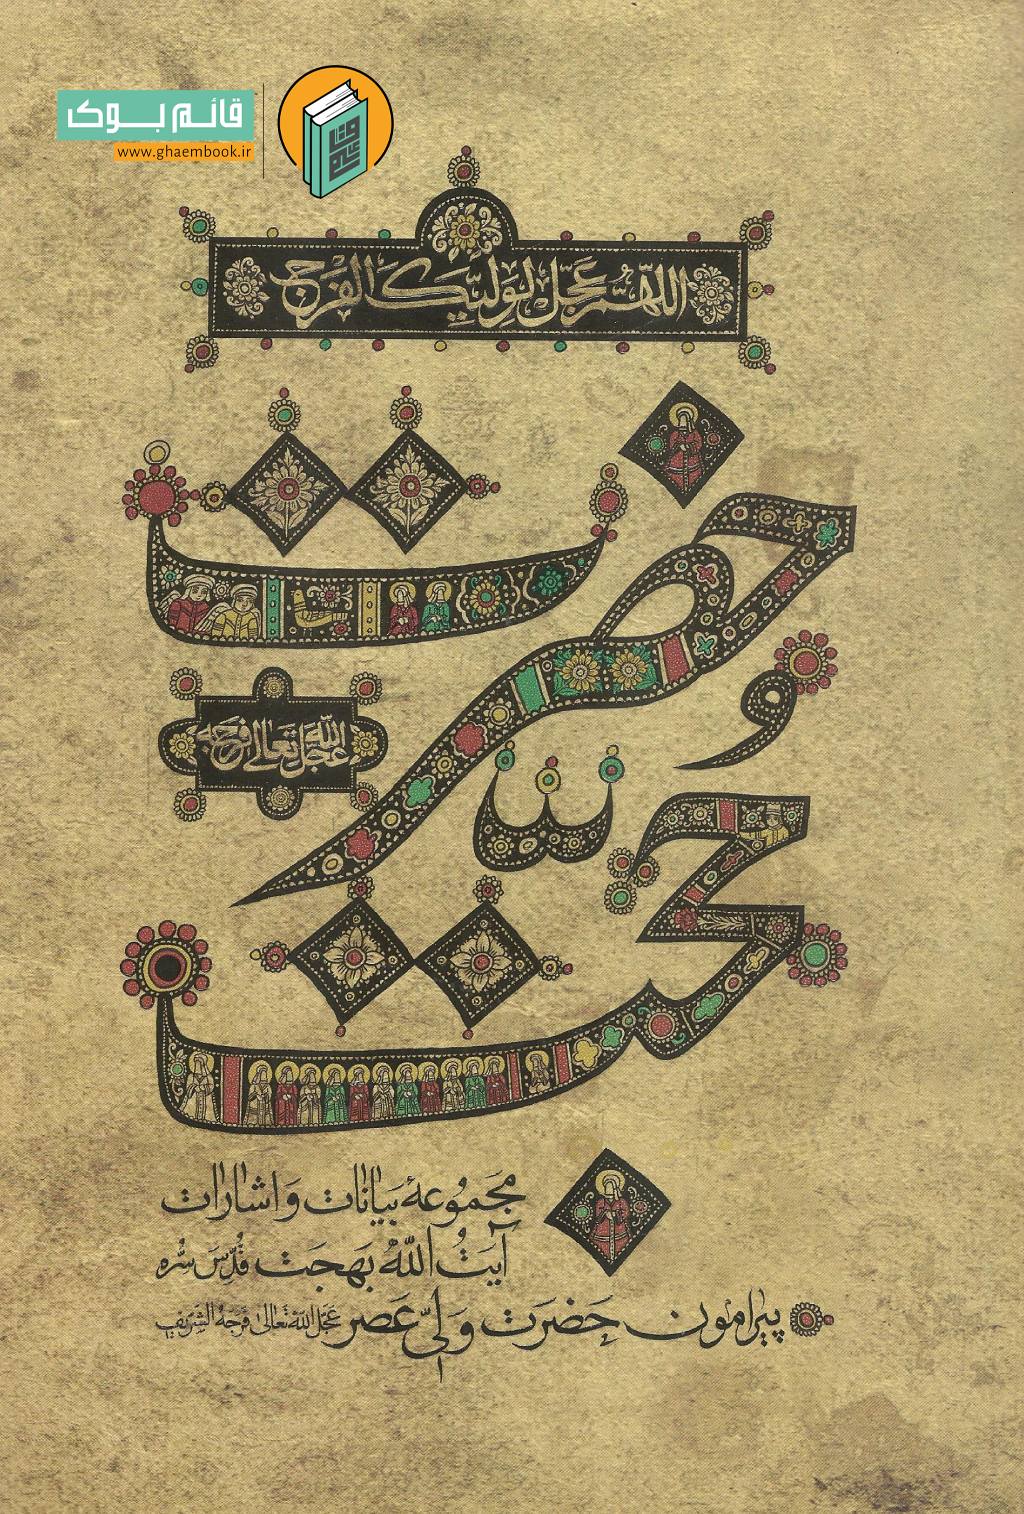 قائم بوک
www.ghaembook.ir
اللّهُمَّ عَجِّل لِوَلِیِّکَ الفَرَج
حضرت
عَجَّلَ اللّهُ تَعالی فَرَجَه
حجت
مَجموعهٔ بَیانات وَ اشارات
آیَتُ اللّهْ بَهجَت قُدِّسَ سُّره
پیرامون حَضرَت وَلیِّ عَصر عَجَّلَ اللّهُ تَعالیٰ فَرَجَهُ الشَّریف